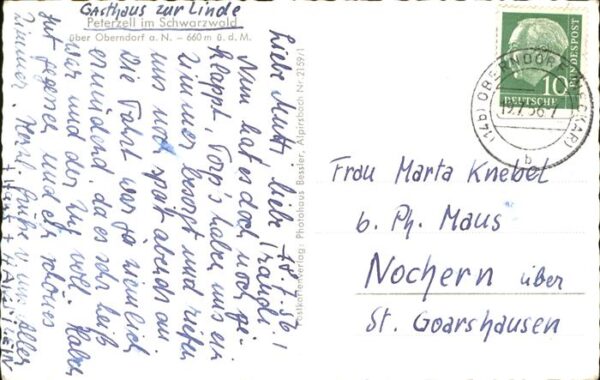 Gasthaus zur Linde
Peterzell im Schwarzwald
über Oberndorf a. N. – 660 m ü. d. M.
18.7.56!
Liebe Mutti, liebe Traudl!
Nun hat es doch noch ge-
klappt, haben uns ein
Zimmer besorgt und riefen
uns noch spät abends an.
Die Fahrt war ja ziemlich
ermüdend, da es sehr heiß
war und der Zug voll. Haben
gut gegessen und ein schönes
Zimmer. Herzl. Grüße v. uns allen
Postkartenverlag: Photohaus Bessler, Alpirsbach Nr. 2159/1
DEUTSCHE
BUNDESPOST
10
(14b) OBERNDORF (NECKAR)
b
Frau Marta Knebel
b. Ph. Maus
Nochern über
St. Goarshausen